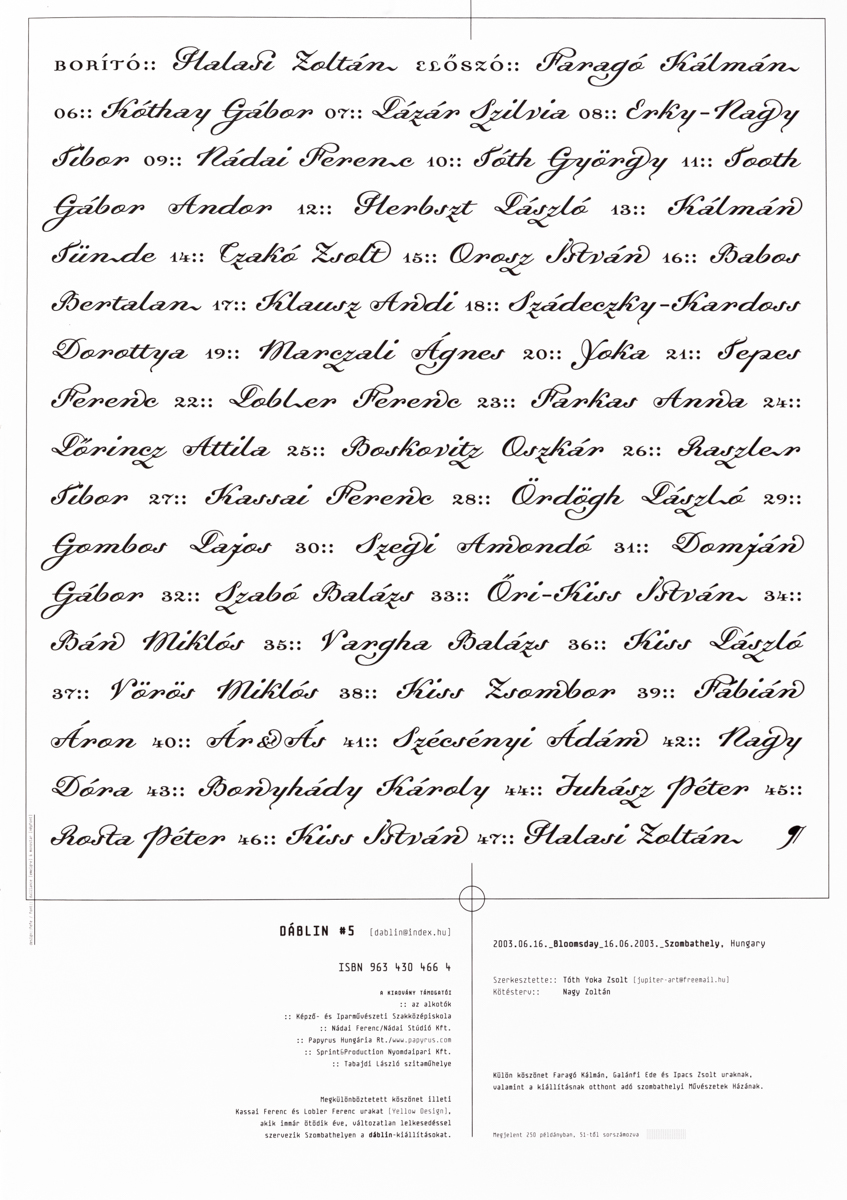 BORÍTÓ:: Halasi Zoltán ELŐSZÓ:: Faragó Kálmán
06:: Kóthay Gábor 07:: Lázár Szilvia 08:: Erky-Nagy
Tibor 09:: Nádai Ferenc 10:: Tóth György 11:: Tooth
Gábor Andor 12:: Herbszt László 13:: Kálmán
Tünde 14:: Czakó Zsolt 15:: Orosz István 16:: Babos
Bertalan 17:: Klausz Andi 18:: Szádeczky-Kardoss
Dorottya 19:: Marczali Ágnes 20:: Yoka 21:: Tepes
Ferenc 22:: Lobler Ferenc 23:: Farkas Anna 24::
Lőrincz Attila 25:: Boskovitz Oszkár 26:: Raszler
Tibor 27:: Kassai Ferenc 28:: Ördögh László 29::
Gombos Lajos 30:: Szegi Amondó 31:: Domján
Gábor 32:: Szabó Balázs 33:: Őri-Kiss István 34::
Bán Miklós 35:: Vargha Balázs 36:: Kiss László
37:: Vörös Miklós 38:: Kiss Zsombor 39:: Fábián
Áron 40:: Ár&Ás 41:: Szécsényi Ádám 42:: Nagy
Dóra 43:: Bonyhády Károly 44:: Juhász Péter 45::
Rosta Péter 46:: Kiss István 47:: Halasi Zoltán ¶
DÁBLIN #5 [dablin@index.hu]
ISBN 963 430 466 4
A KIADVÁNY TÁMOGATÓI
:: az alkotók
:: Képző- és Iparművészeti Szakközépiskola
:: Nádai Ferenc/Nádai Stúdió Kft.
:: Papyrus Hungária Rt./www.papyrus.com
:: Sprint&Production Nyomdaipari Kft.
:: Tabajdi László szitaműhelye
Megkülönböztetett köszönet illeti
Kassai Ferenc és Lobler Ferenc urakat [Yellow Design],
akik immár ötödik éve, változatlan lelkesedéssel
szervezik Szombathelyen a dáblin-kiállításokat.
2003.06.16._Bloomsday_16.06.2003._Szombathely, Hungary
Szerkesztette:: Tóth Yoka Zsolt [jupiter-art@freemail.hu]
Kötésterv:: Nagy Zoltán
Külön köszönet Faragó Kálmán, Galánfi Ede és Ipacs Zsolt uraknak,
valamint a kiállításnak otthont adó szombathelyi Művészetek Házának.
Megjelent 250 példányban, 51-től sorszámozva